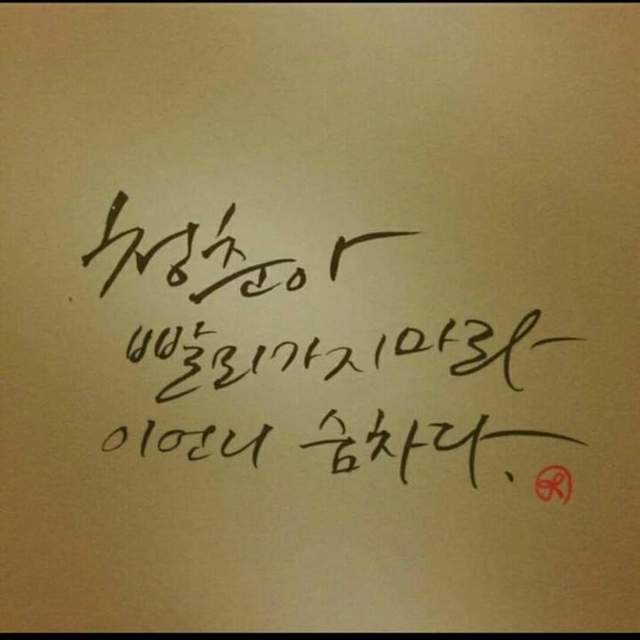 청춘아
빨리가지마라
이언니 숨차다.